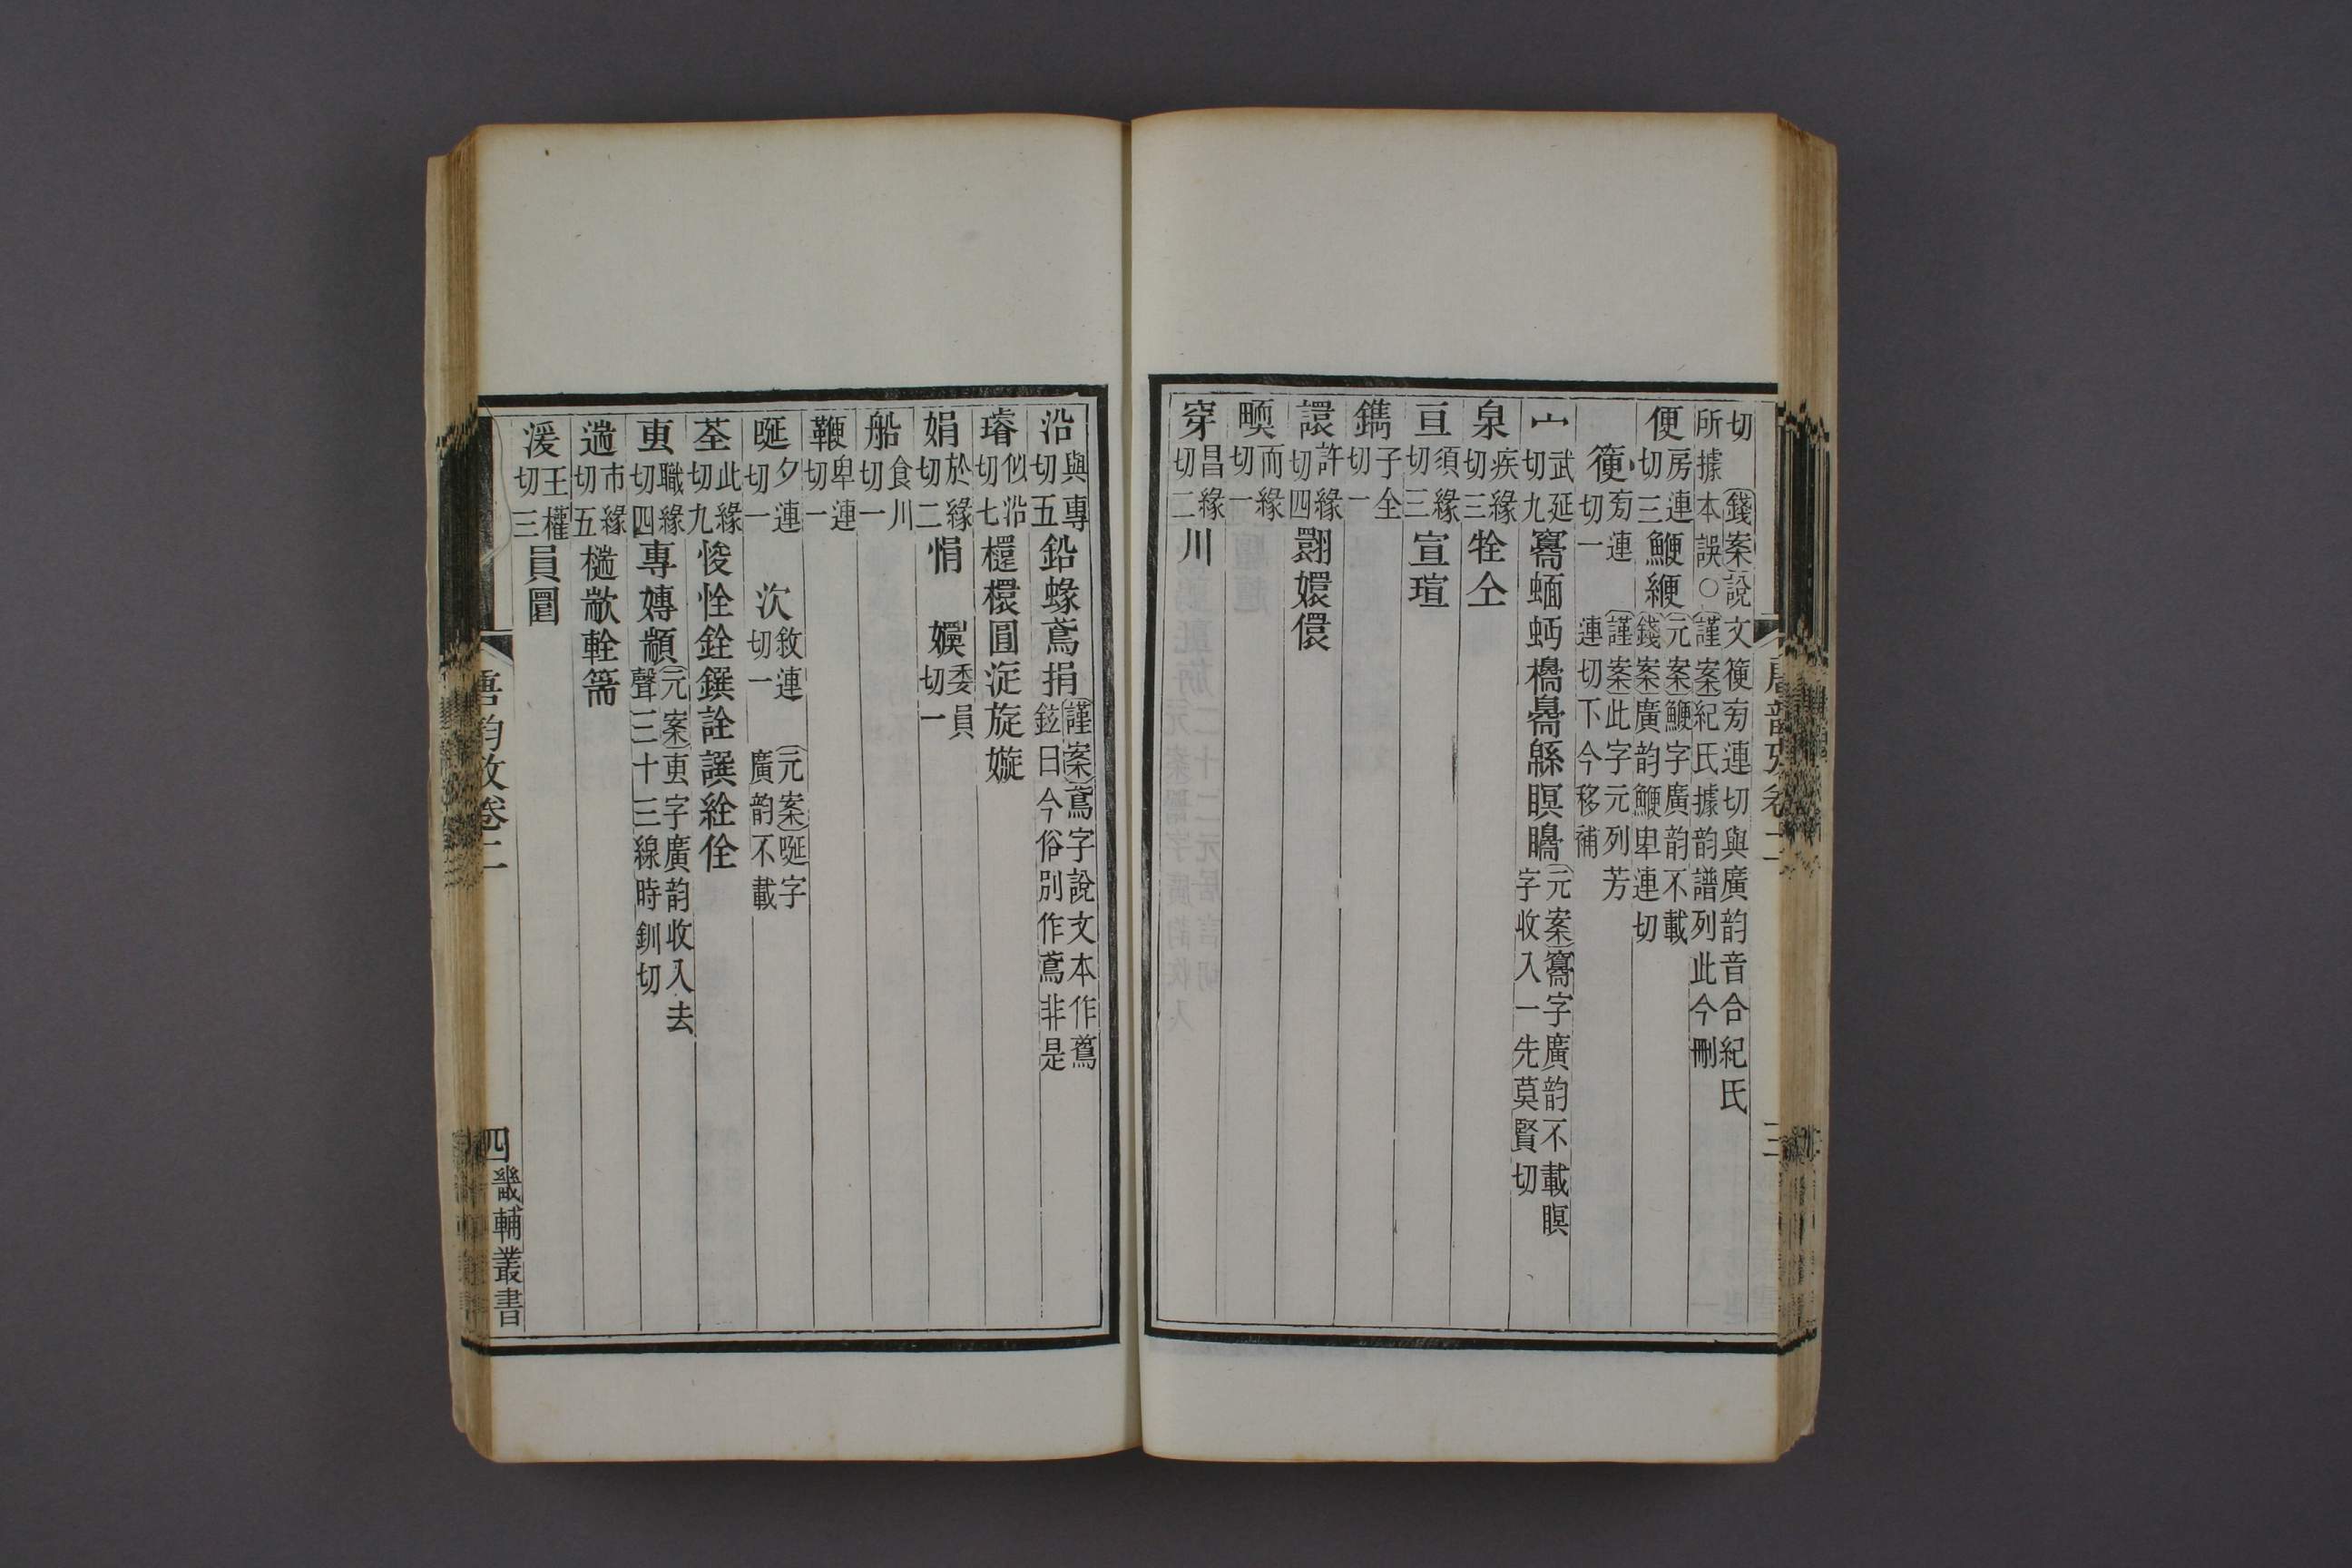 切 錢案說文䉃㫄連切與廣韵音合紀氏
所據本誤○謹案紀氏據韵譜列此今刪
便房連切三鯾緶元案鯾字廣韵不載錢案廣韵鯾卑連切
㫄連切一 謹案此字元列芳連切下今移補
宀武延切九𥦀蝒蚂櫋矏緜瞑矊元案𥦀字廣韵不載瞑字收入一先莫賢切
泉疾緣切三牷仝
亘須緣切三宣瑄
鐫子全切一
譞許緣切四翾嬛儇
㬉而緣切一
穿昌緣切二川
唐韵攷卷二
三
沿與專切五鉛蝝鳶捐謹案鳶字說文本作䳒鉉曰今俗別作鳶非是
璿似沿切七檈圓淀旋嫙
娟於緣切二悁 嬽委員切一
船食川切一
鞭卑連切一
唌夕連切一 㳄敘連切一 元案唌字廣韵不載
荃此緣切九悛恮銓鐉詮譔絟佺
叀職緣切四專嫥顓元案叀字廣韵收入去聲三十三線時釧切
遄市緣切五檛歂輇篅
湲王權切三員圓
唐韵攷卷二
四
畿輔叢書